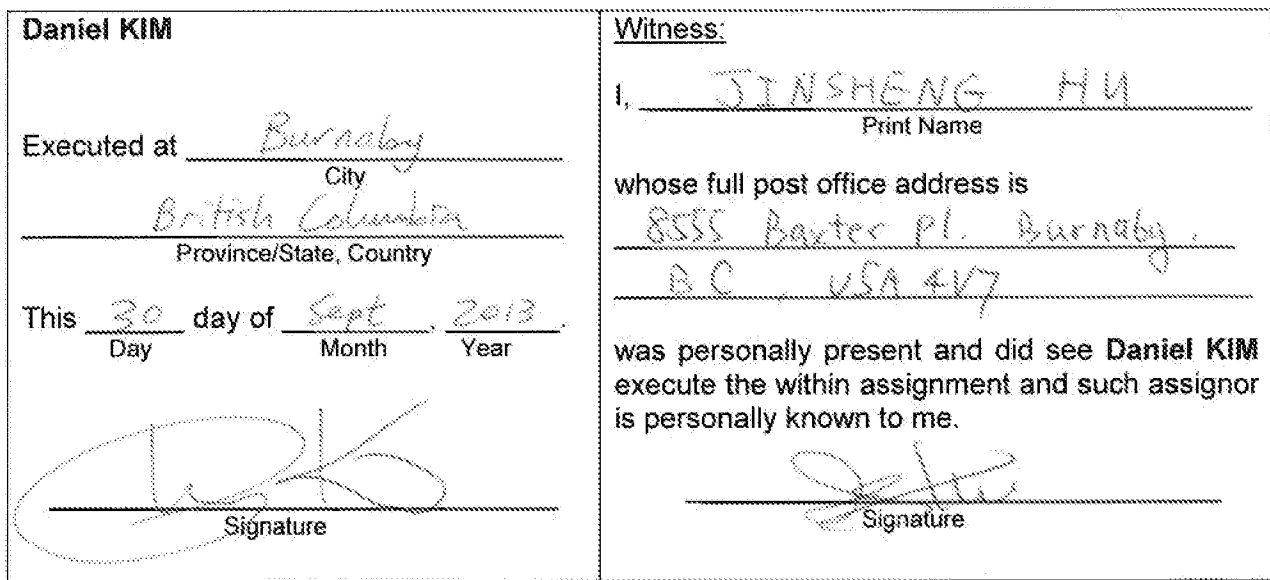 Daniel KIM
Executed at Burnaby
City
British Columbia
Province/State, Country
This 30 day of Sept, 2013.
Day Month Year
Signature
Witness:
I, JINSHENG HU
Print Name
whose full post office address is
8555 Baxter Pl. Burnaby.
BC, V5A 4V7
was personally present and did see Daniel KIM
execute the within assignment and such assignor
is personally known to me.
Signature